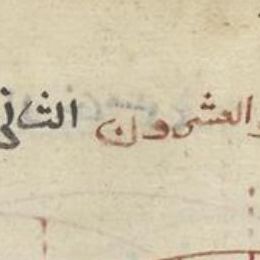 والعشرون الثاني